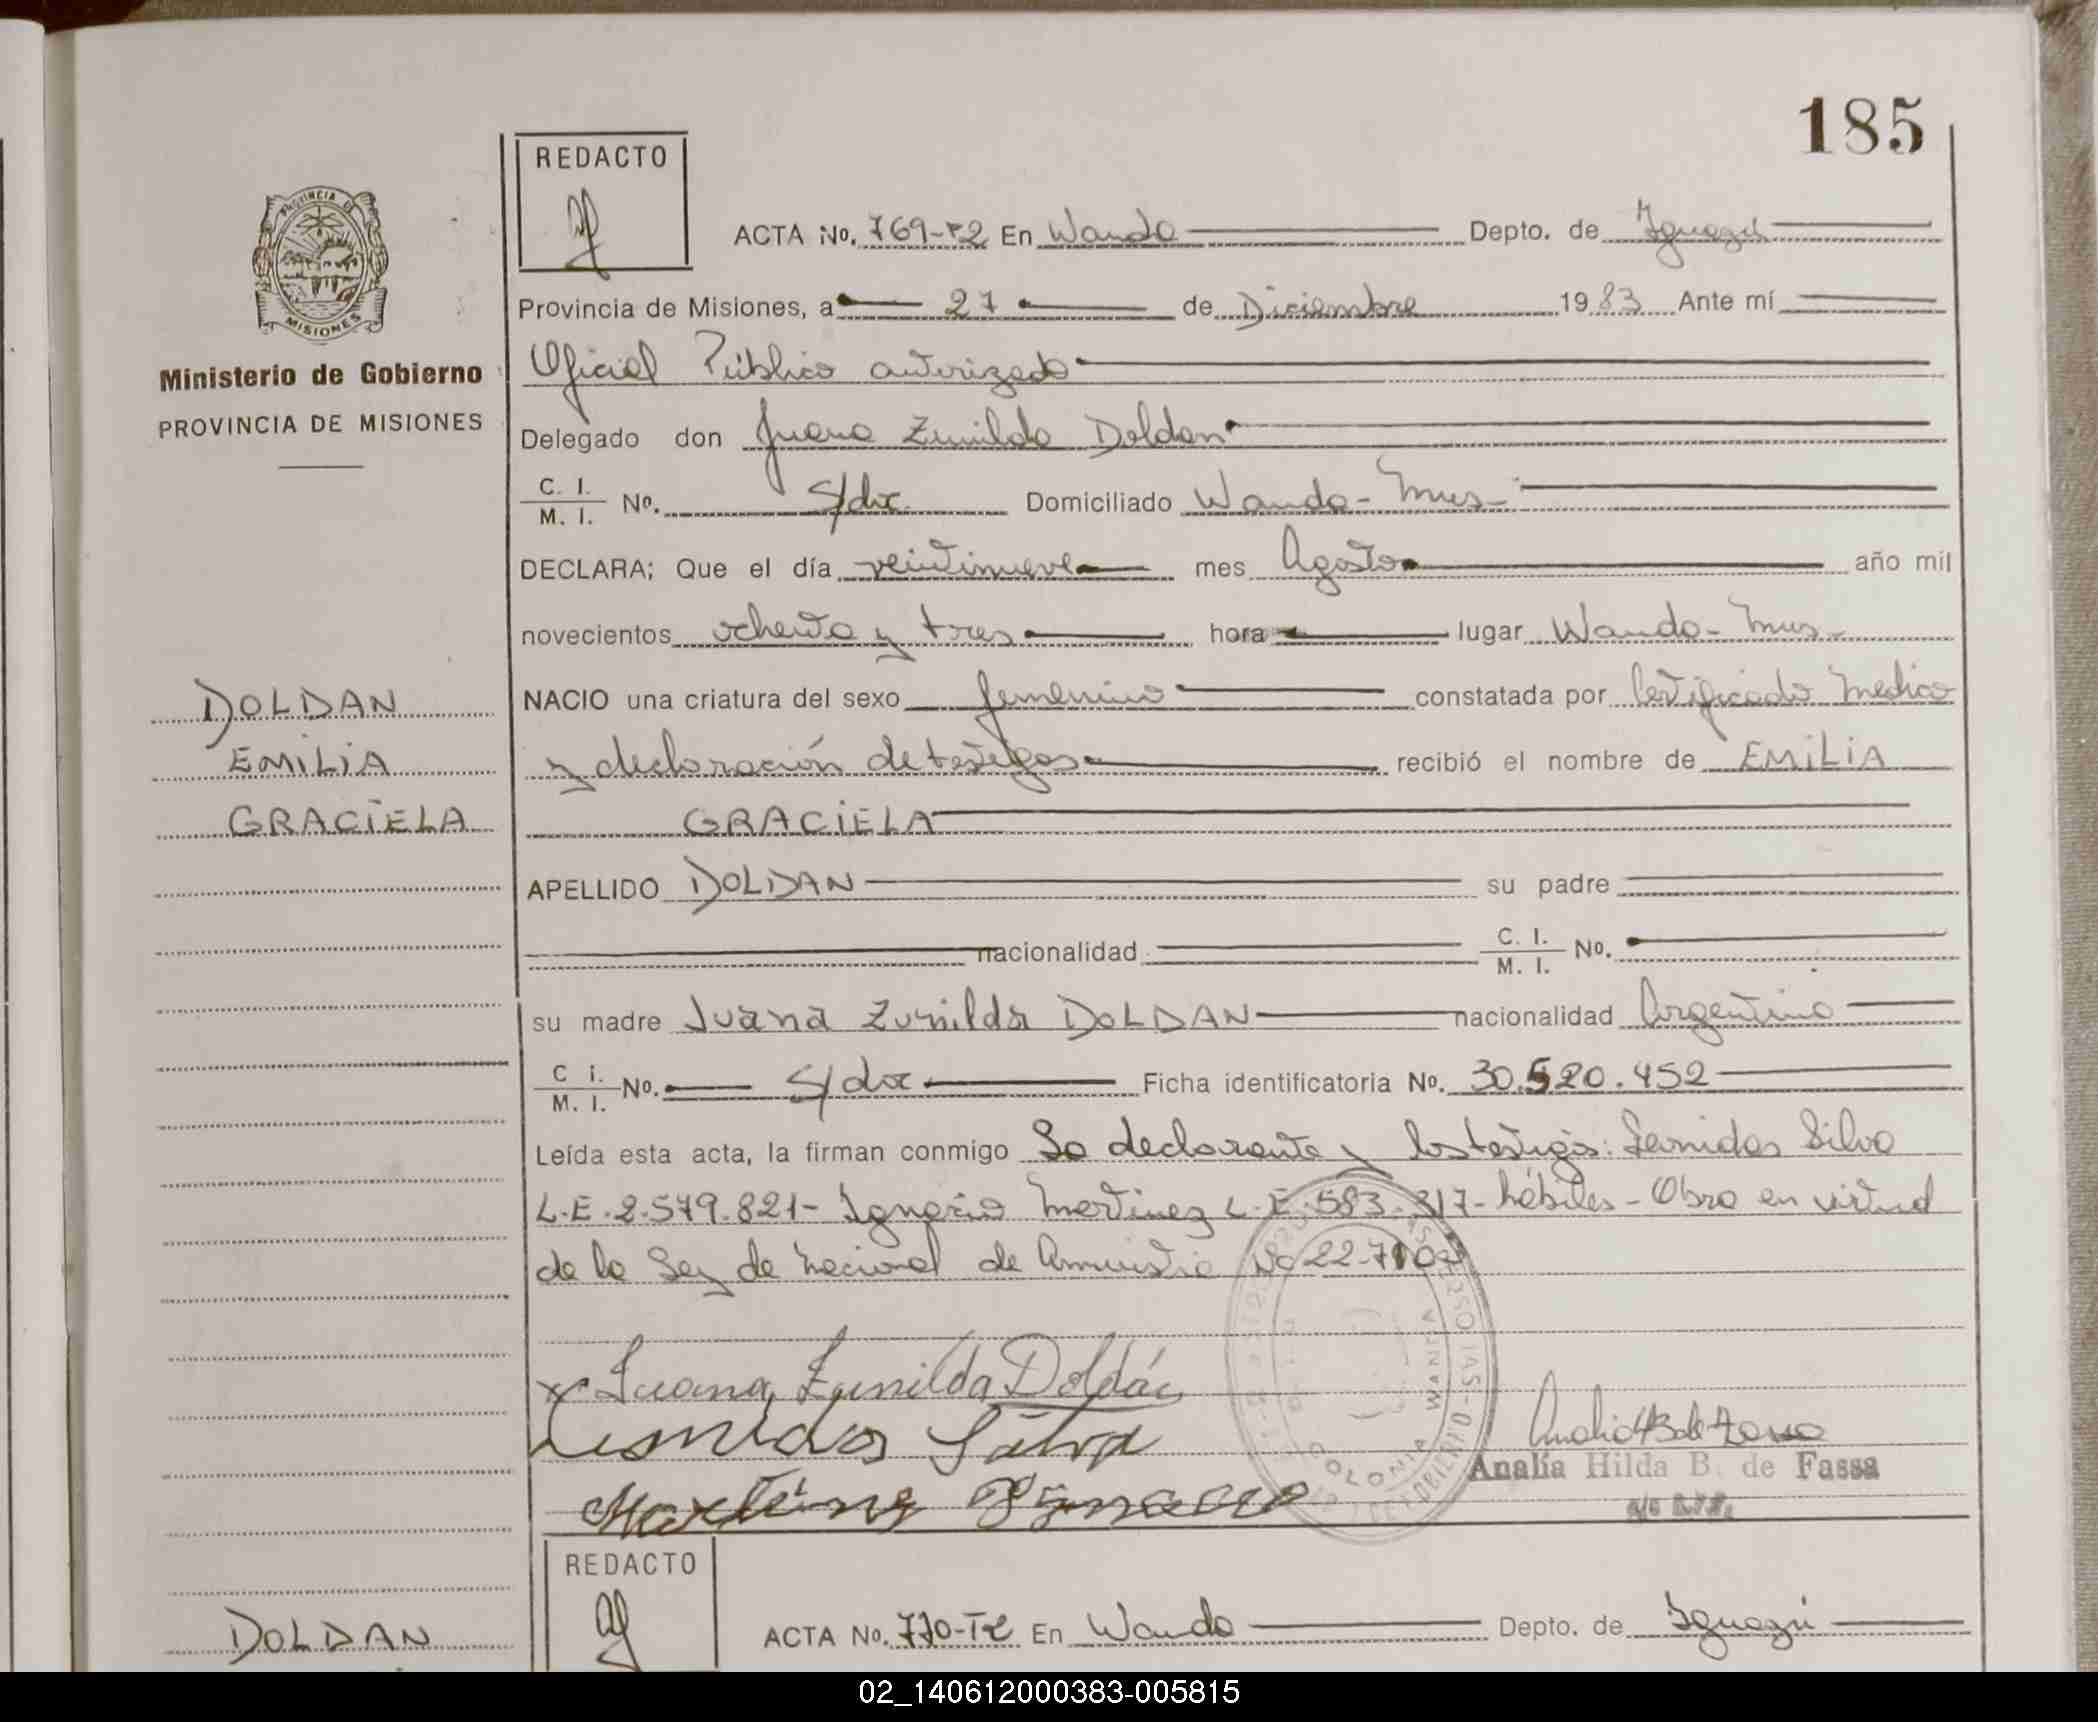 185
REDACTO
PROVINCIA DE
MISIONES
Ministerio de Gobierno
PROVINCIA DE MISIONES
ACTA No. 769-T2 En Wanda Depto. de Iguazú
Provincia de Misiones, a 27 de Diciembre 1983 Ante mí
Oficial Público autorizado
Delegado don Juana Zunilda Doldan
C. I. / M. I. No. S/doc. Domiciliado Wanda - Mnes-
DECLARA; Que el día veintinueve mes Agosto año mil
novecientos ochenta y tres hora lugar Wanda - Mnes-
DOLDAN
EMILIA
GRACIELA
NACIO una criatura del sexo femenino constatada por Certificado Medico
y declaración de testigos recibió el nombre de EMILIA
GRACIELA
APELLIDO DOLDAN su padre
nacionalidad C. I. / M. I. No.
su madre Juana Zunilda DOLDAN nacionalidad Argentina
C i. / M. I. No. S/doc Ficha identificatoria No. 30.520.452
Leída esta acta, la firman conmigo La declarante y los testigos: Leonidas Silva
L.E. 2.579.821- Ignacio Martinez L.E. 583.317- hábiles - Obra en virtud
de la Ley de Nacional de Amnistia No 22-710
x Juana Zunilda Doldán
Leonidas Silva
Martinez Ignacio
COLONIA WANDA
Analía Hilda B. de Fassa
REDACTO
DOLDAN
ACTA No. 770-T2 En Wanda Depto. de Iguazú
02_140612000383-005815